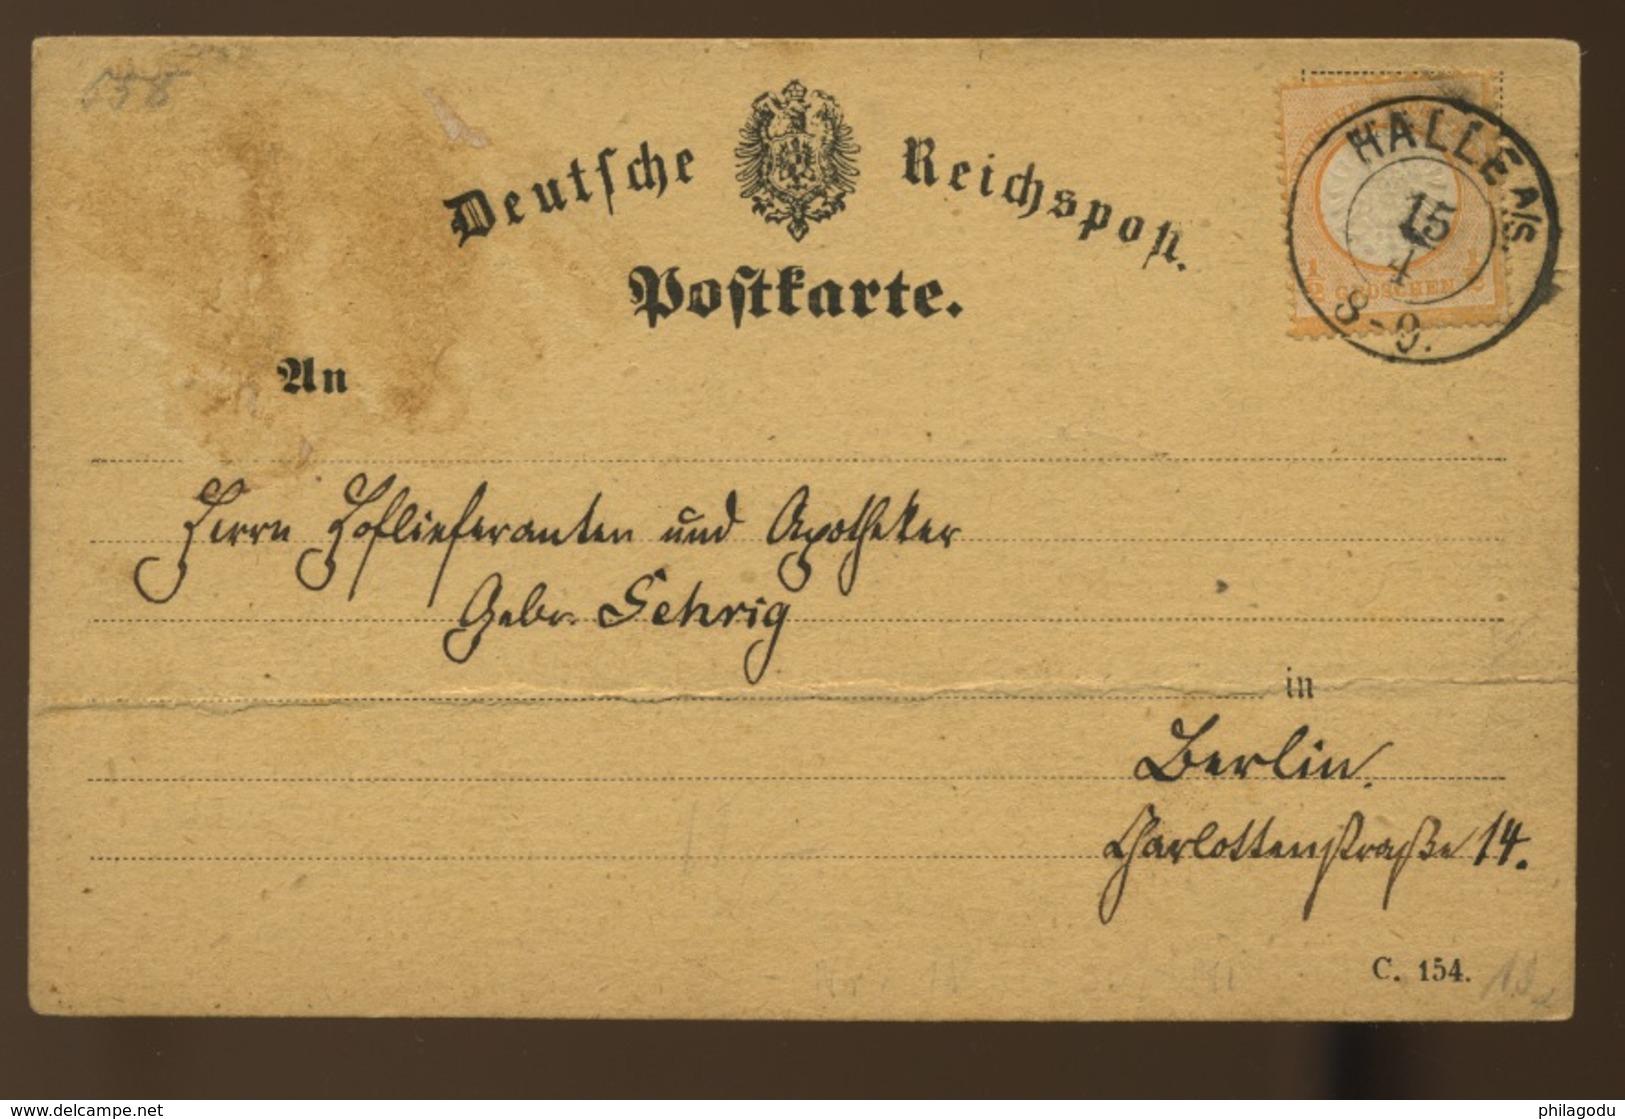 158
Deutsche Reichspost.
Postkarte.
HALLE A/S
15
4
8-9.
1/2 GROSCHEN 1/2
An
Herrn Hoflieferanten und Apotheker
Gebr. Gehrig
in
Berlin.
Charlottenstraße 14.
C. 154.
www.delcampe.net
philagodu